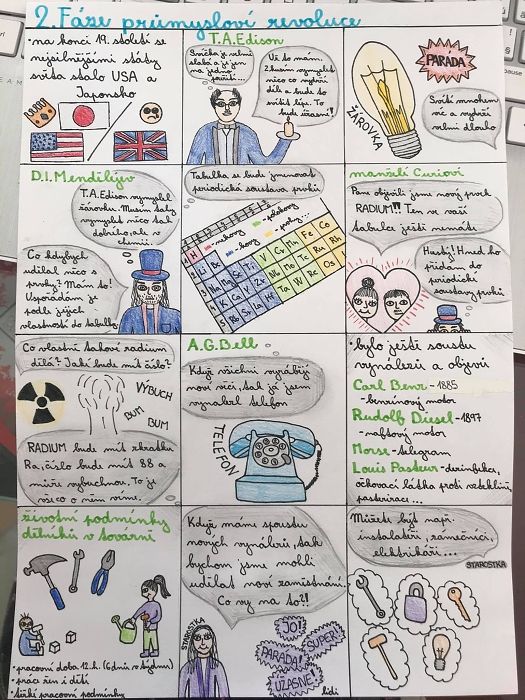 2. Fáze průmyslové revoluce
•na konci 19. století se
nejsilnějšími státy
světa stalo USA a
Japonsko
T.A.Edison
Svíčka je velmi
slabá a je jen
na jedno
použití...
Už to mám!
Zkusím vymyslet
něco co vydrží
déle a bude to
svítit lépe. To
bude úžasné!
PARADA
ŽÁROVKA
Svítí mnohem
víc a vydrží
velmi dlouho
D.I.Mendělějev
T.A.Edison vymyslel
žárovku. Musím taky
vymyslet něco tak
dobrého, ale v
chemii.
Co kdybych
udělal něco s
prvky? Mám to!
Uspořádám je
podle jejich
vlastností do tabulky
Tabulka se bude jmenovat
periodická soustava prvků
-nekovy
-polokovy
-kovy
-prvky...
H
Li Be
Na Mg Sc Ti V Cr Mn Fe Co
K Ca Y Zr Nb Mo Tc Ru Rh
Rb Sr La Hf Ta W Re Os
manželé Curiovi
Pane objevili jsme nový prvek
RADIUM!! Ten ve vaší
tabulce ještě nemáte
Hustý! Hned ho
přidám do
periodické
soustavy prvků
Co vlastně takové radium
dělá? Jaké bude mít číslo?
VÝBUCH
BUM
BUM
RADIUM bude mít zkratku
Ra, číslo bude mít 88 a
může vybuchnou. To je
vše co o něm víme.
A.G.Bell
Když všichni vyrábějí
nové věci, tak já jsem
vynalezl telefon
TELEFON
•bylo ještě spoustu
vynálezů a objevů
Carl Benz - 1885
-benzínový motor
Rudolf Diesel - 1897
-naftový motor
Morse - telegram
Louis Pasteur - dezinfekce,
očkovací látka proti vzteklině,
pasterizace...
životní podmínky
dělníků v továrně
•pracovní doba 12.h. (6dnů v týdnu)
•práce žen i dětí
•těžké pracovní podmínky
Když máme spoustu
nových vynálezů, tak
bychom jsme mohli
udělat nové zaměstnání.
Co vy na to?!
STAROSTKA
JO!
SUPER!
PARADA!
ÚŽASNÉ!
lidi
Můžete být např.
instalatéři, zámečníci,
elektrikáři...
STAROSTKA